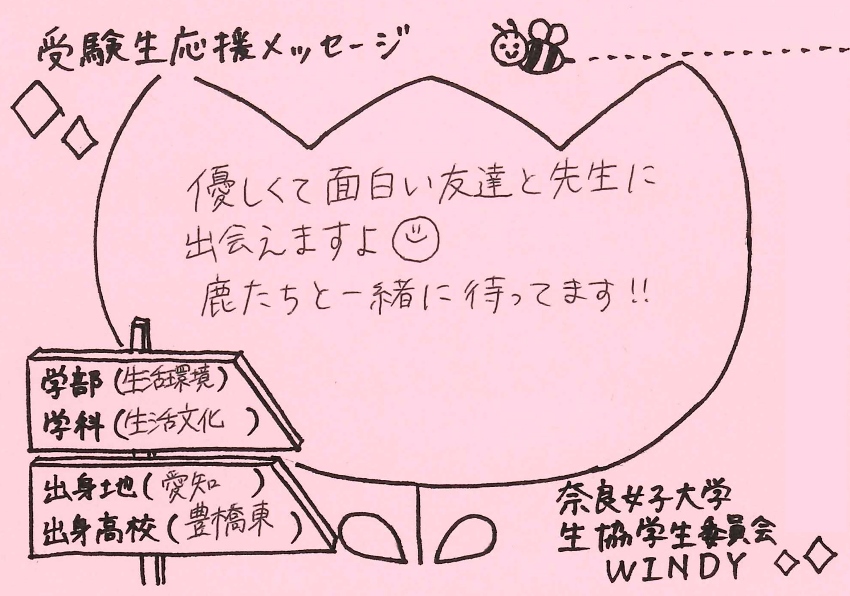 受験生応援メッセージ
優しくて面白い友達と先生に
出会えますよ
鹿たちと一緒に待ってます!!
学部(生活環境)
学科(生活文化)
出身地(愛知)
出身高校(豊橋東)
奈良女子大学
生協学生委員会
WINDY